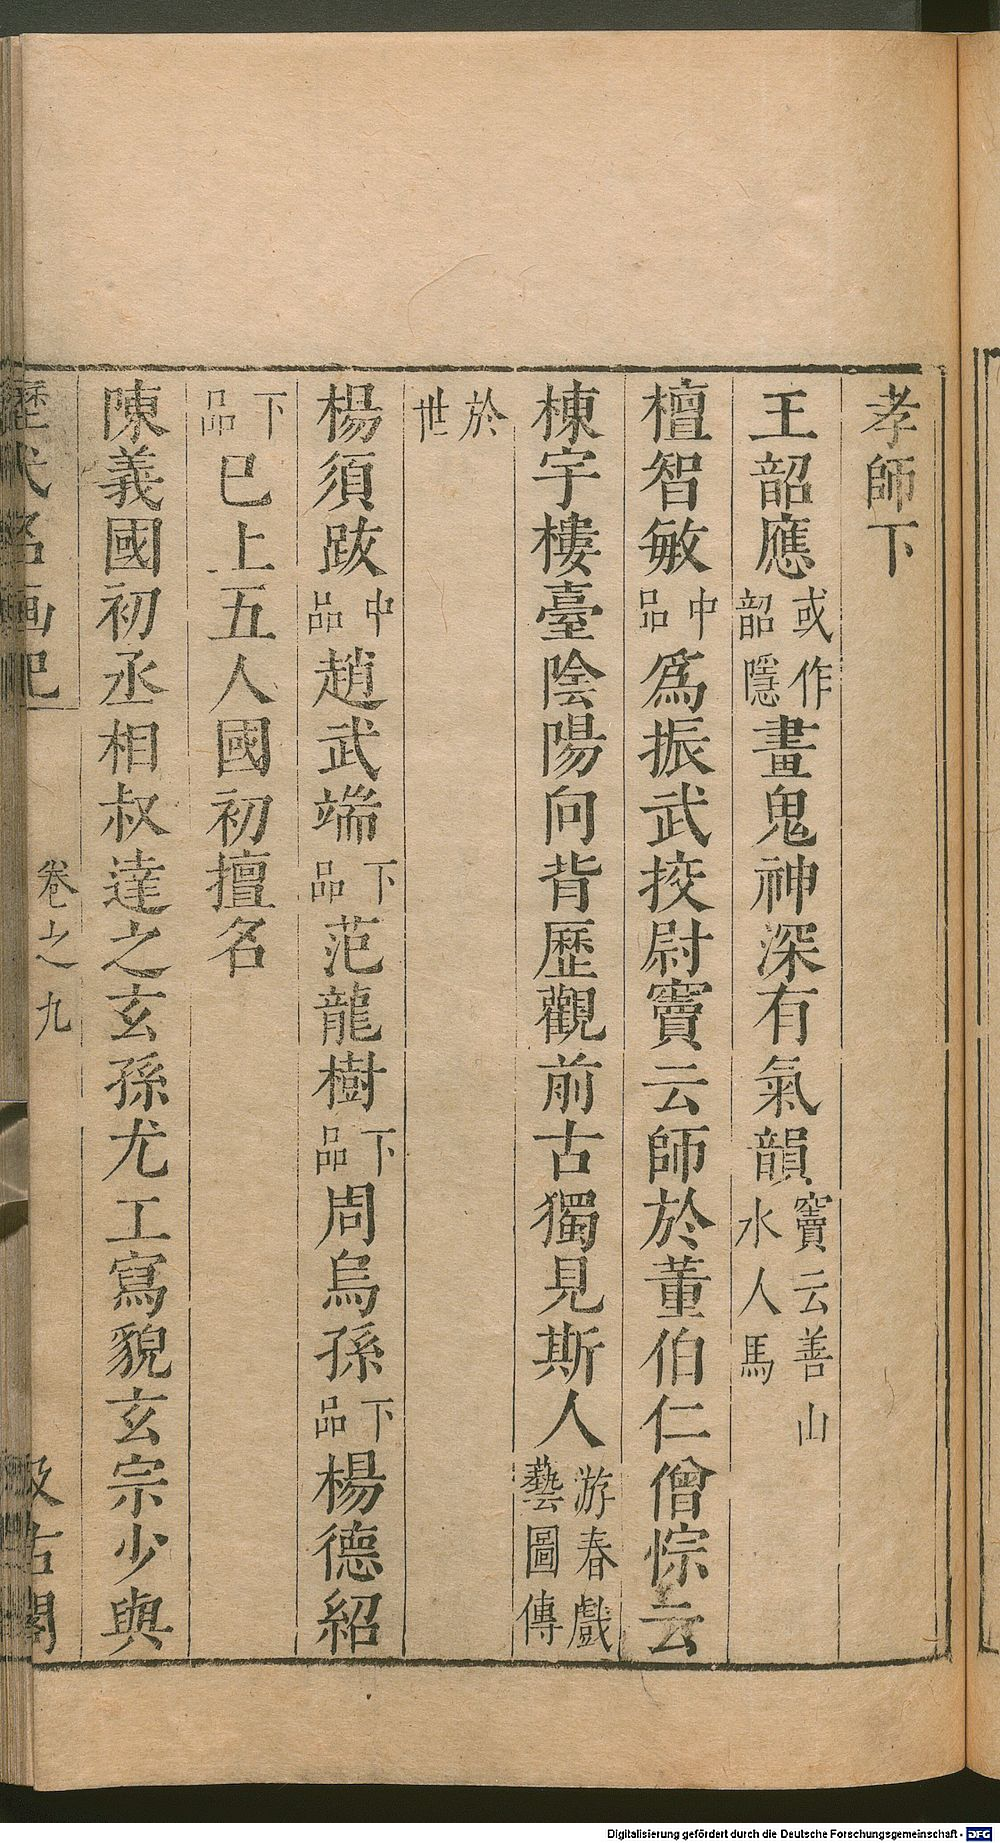 孝師下
王韶應或作韶隱畫鬼神深有氣韻竇云善山水人馬
檀智敏中品爲振武挍尉竇云師於董伯仁僧悰云
棟宇樓臺陰陽向背歷觀前古獨見斯人游春戲藝圖傳
於世
楊須跋中品趙武端下品范龍樹下品周烏孫下品楊德紹
下品已上五人國初擅名
陳義國初丞相叔達之玄孫尤工寫貌玄宗少與
歷代名畫記 卷之九 汲古閣
Digitalisierung gefördert durch die Deutsche Forschungsgemeinschaft - DFG